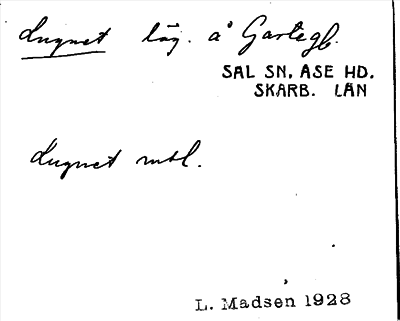 Lugnet läg. å Garlegb.
SAL SN, ASE HD.
SKARB. LÄN
Lugnet mtl.
L. Madsen 1928